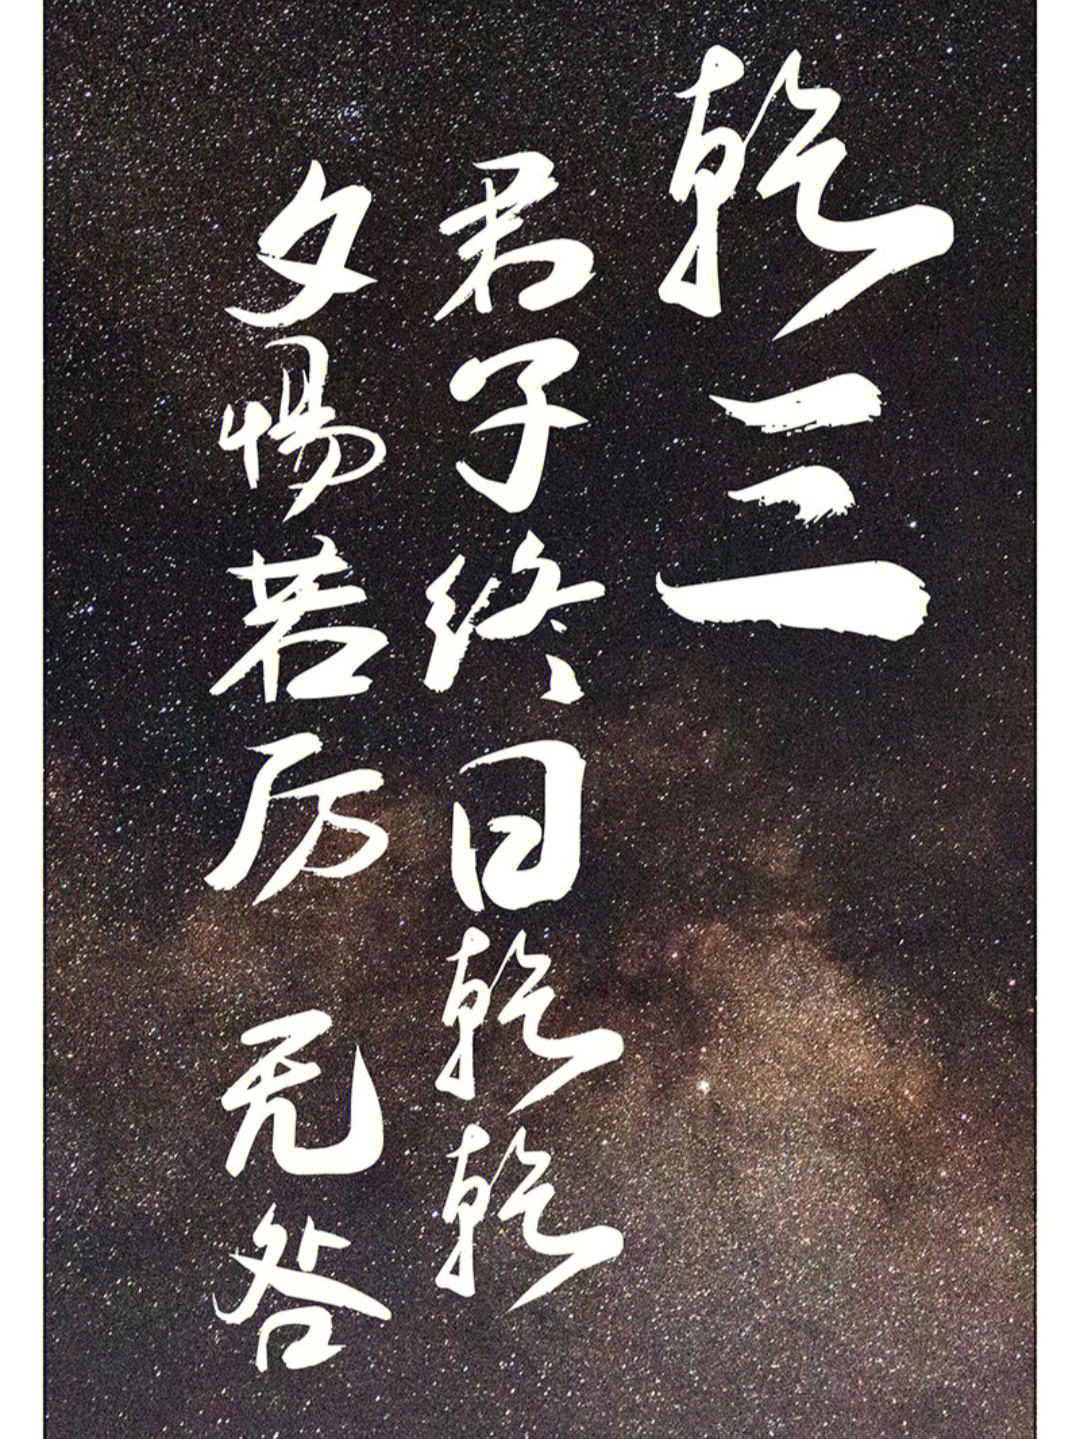 乾三
君子终日乾乾
夕惕若厉 无咎